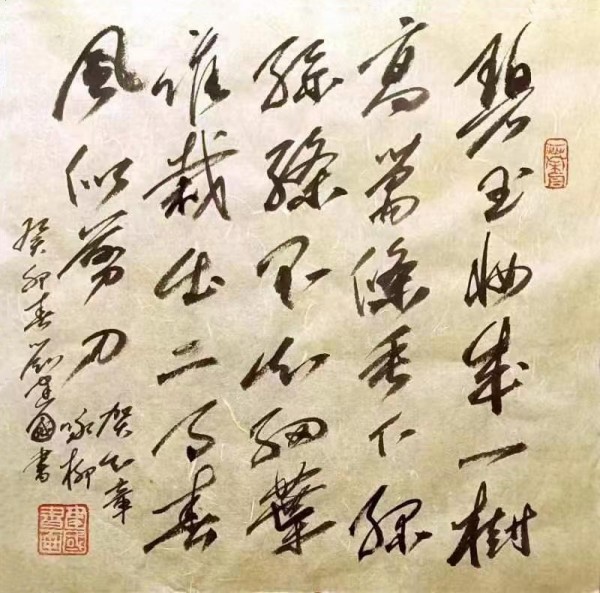 碧玉妝成一樹
高萬條垂下綠
絲絛不知細葉
誰裁出二月春
風似剪刀
賀知章
咏柳
癸卯春劉建國書